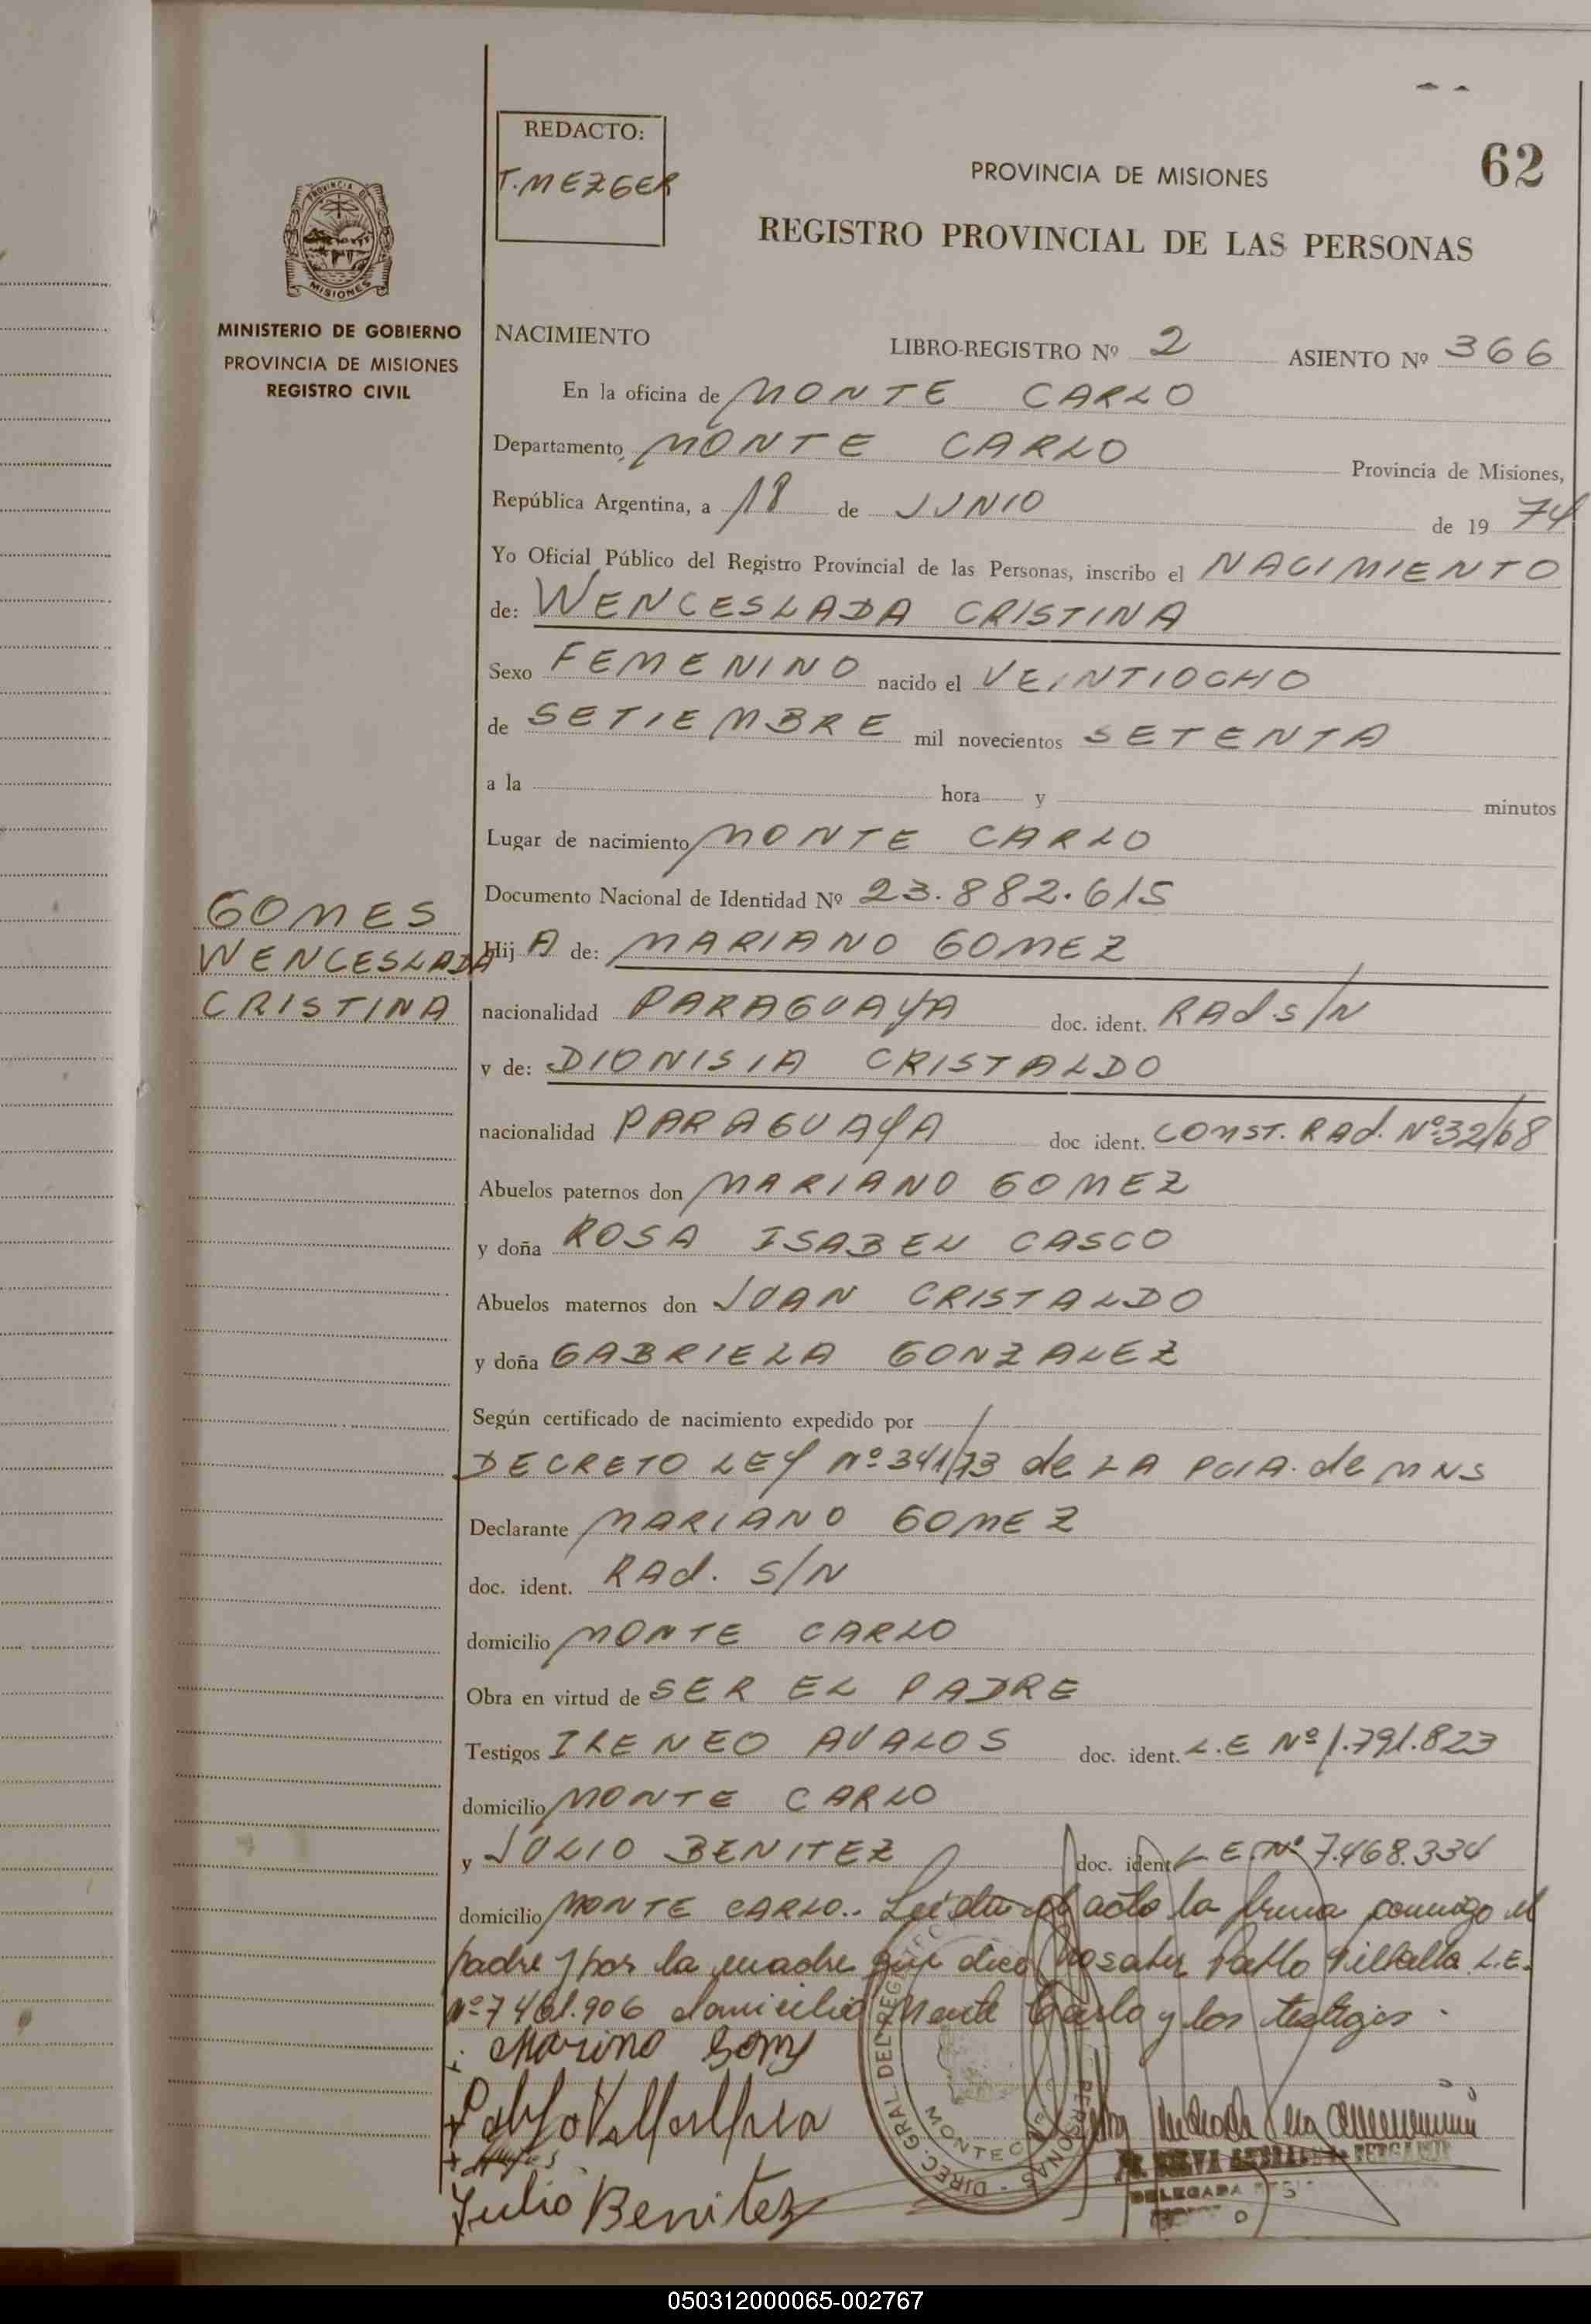 REDACTO:
T. MEZGER
PROVINCIA DE MISIONES
62
REGISTRO PROVINCIAL DE LAS PERSONAS
PROVINCIA DE
MISIONES
MINISTERIO DE GOBIERNO
PROVINCIA DE MISIONES
REGISTRO CIVIL
NACIMIENTO LIBRO-REGISTRO Nº 2 ASIENTO Nº 366
En la oficina de MONTE CARLO
Departamento MONTE CARLO Provincia de Misiones,
República Argentina, a 18 de JUNIO de 19 74
Yo Oficial Público del Registro Provincial de las Personas, inscribo el NACIMIENTO
de: WENCESLADA CRISTINA
Sexo FEMENINO nacido el VEINTIOCHO
de SETIEMBRE mil novecientos SETENTA
a la hora y minutos
Lugar de nacimiento MONTE CARLO
Documento Nacional de Identidad Nº 23.882.615
GOMES
WENCESLADA
CRISTINA
Hij A de: MARIANO GOMEZ
nacionalidad PARAGUAYA doc. ident. RAd S/N
y de: DIONISIA CRISTALDO
nacionalidad PARAGUAYA doc ident. CONST. RAd. Nº32/68
Abuelos paternos don MARIANO GOMEZ
y doña ROSA ISABEL CASCO
Abuelos maternos don JUAN CRISTALDO
y doña GABRIELA GONZALEZ
Según certificado de nacimiento expedido por /
DECRETO LEY Nº 341/73 de LA PCIA. de MNS
Declarante MARIANO GOMEZ
doc. ident. RAd. S/N
domicilio MONTE CARLO
Obra en virtud de SER EL PADRE
Testigos IRENEO AVALOS doc. ident. L.E Nº 1.791.823
domicilio MONTE CARLO
y JULIO BENITEZ doc. ident L E. Nº 7.468.334
domicilio MONTE CARLO.. Leida el acto la firma conmigo el
padre y por la madre que dice no saber Pablo Villalla L.E.
Nº 7461.906 domicilio Monte Carlo y los testigos.
Marino Gomz
Julio Benitez
DIREC. GRAL. DEL REG PERSONAS
MONTEC
DELEGADA
050312000065-002767